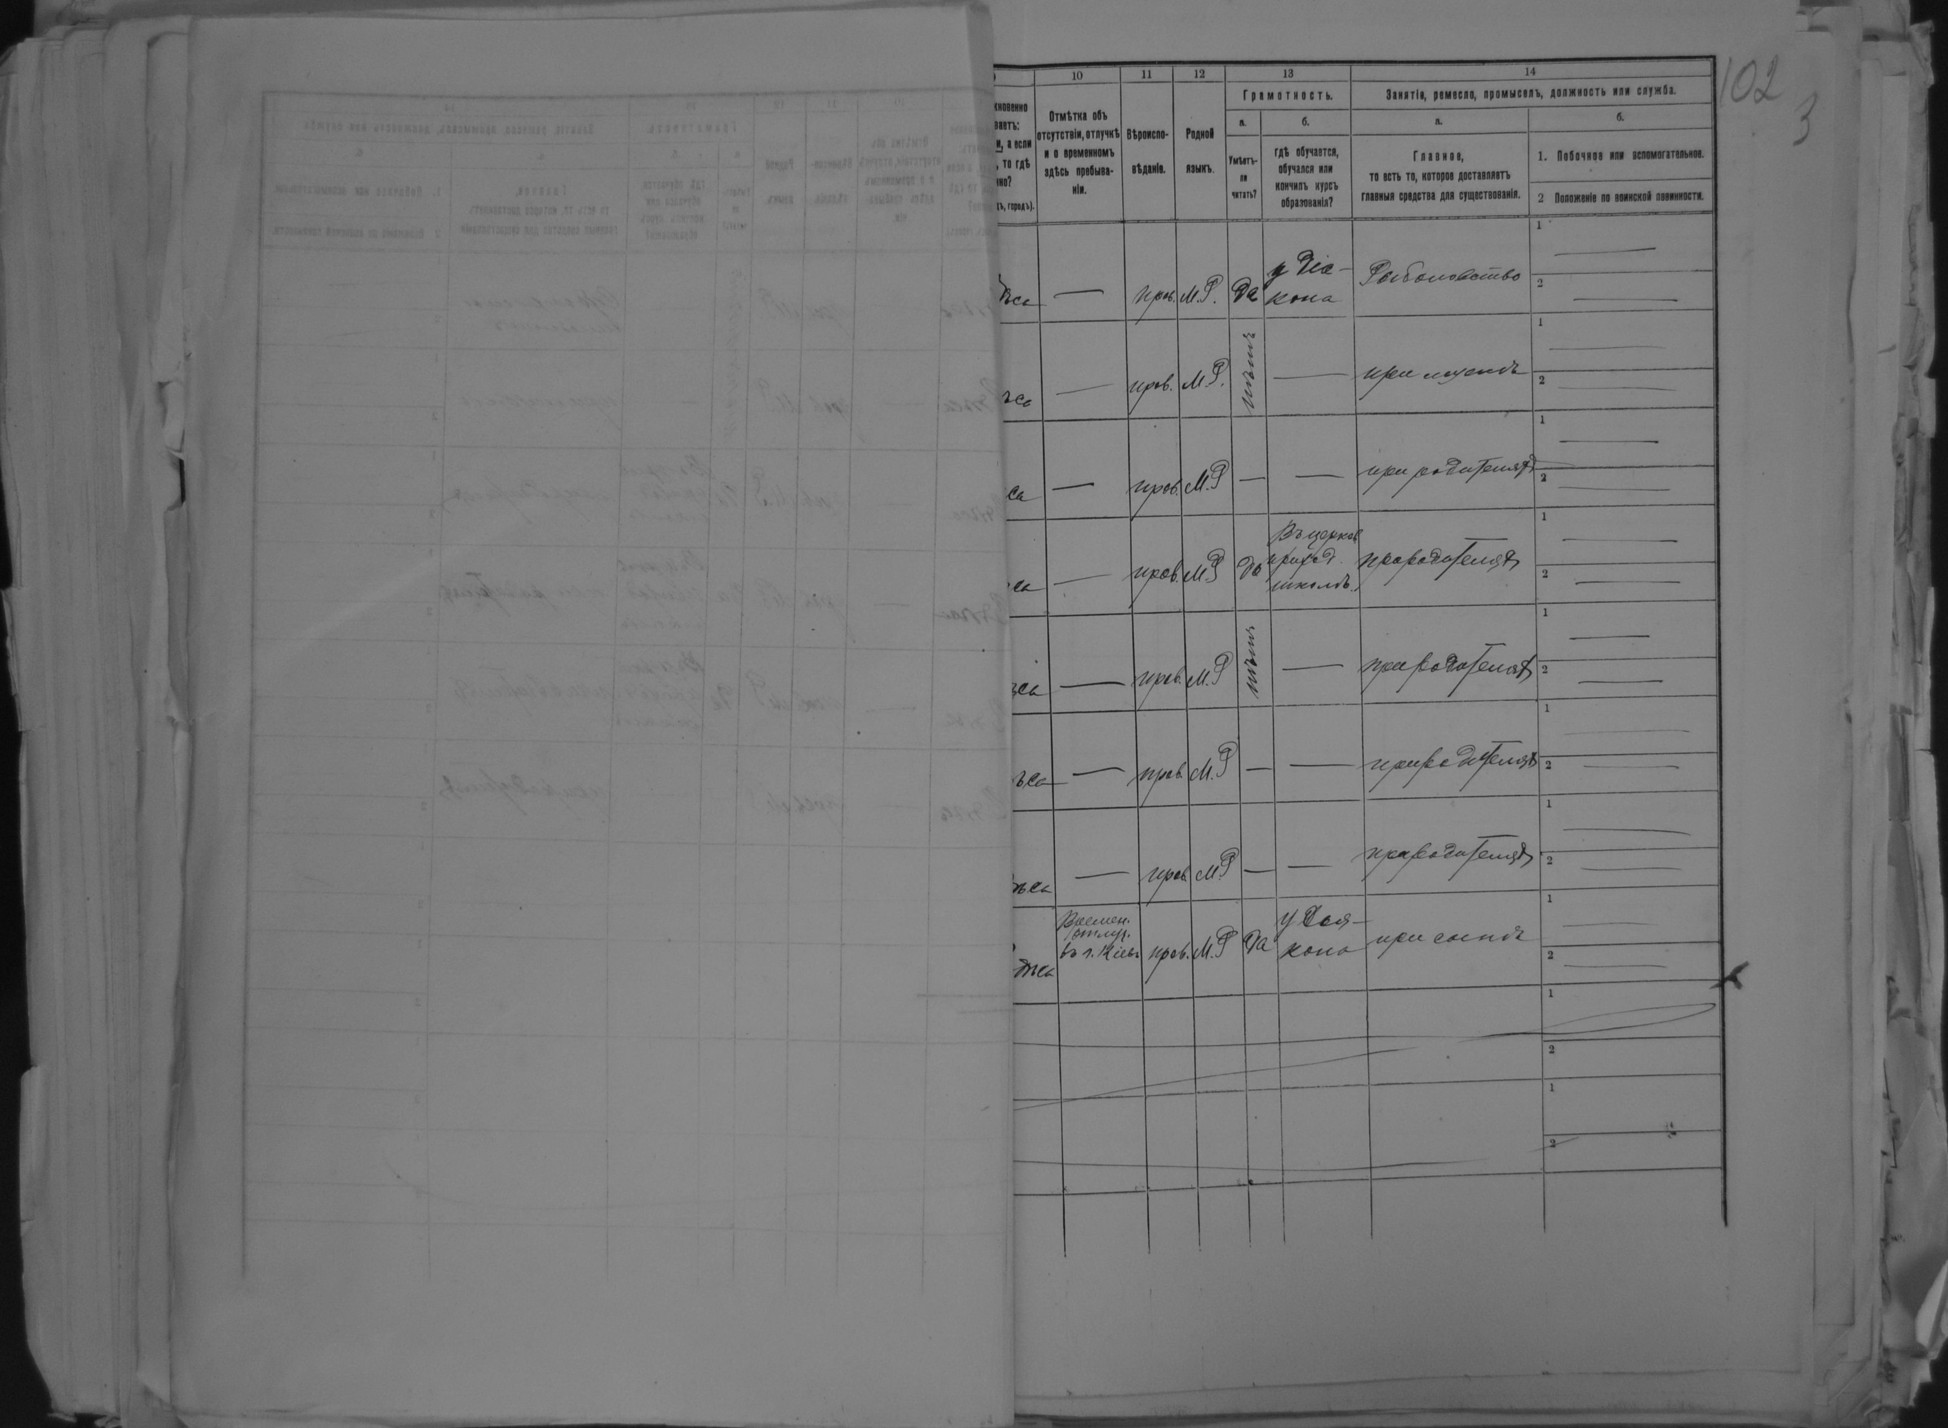 102
3
10 11 12 13 14
Отмѣтка объ отсутствіи, отлучкѣ и о временномъ здѣсь пребываніи.
Вѣроисповѣданіе.
Родной языкъ.
Грамотность.
а.
Умѣетъ-ли читать?
б.
гдѣ обучается, обучался или кончилъ курсъ образованія?
Занятія, ремесло, промыселъ, должность или служба.
а.
Главное,
то есть то, которое доставляетъ
главныя средства для существованія.
б.
1. Побочное или вспомогательное.
2 Положеніе по воинской повинности.
— прав. М.Р. да у діакона Рыболовство 1 — 2 —
— прав. М.Р. нѣтъ — при мужѣ 1 — 2 —
— прав. М.Р — — при родителях 1 — 2 —
— прав. М.Р да Въ церков. приход. школѣ при родителях 1 — 2 —
— прав. М.Р нѣтъ — при родителях 1 — 2 —
— прав. М.Р — — при родителях 1 — 2 —
— прав М.Р — — при родителях 1 — 2 —
Времен. отлуч. въ г. Кіевъ прав. М.Р да у Диякона при сынѣ 1 2 —
1
2
1
2